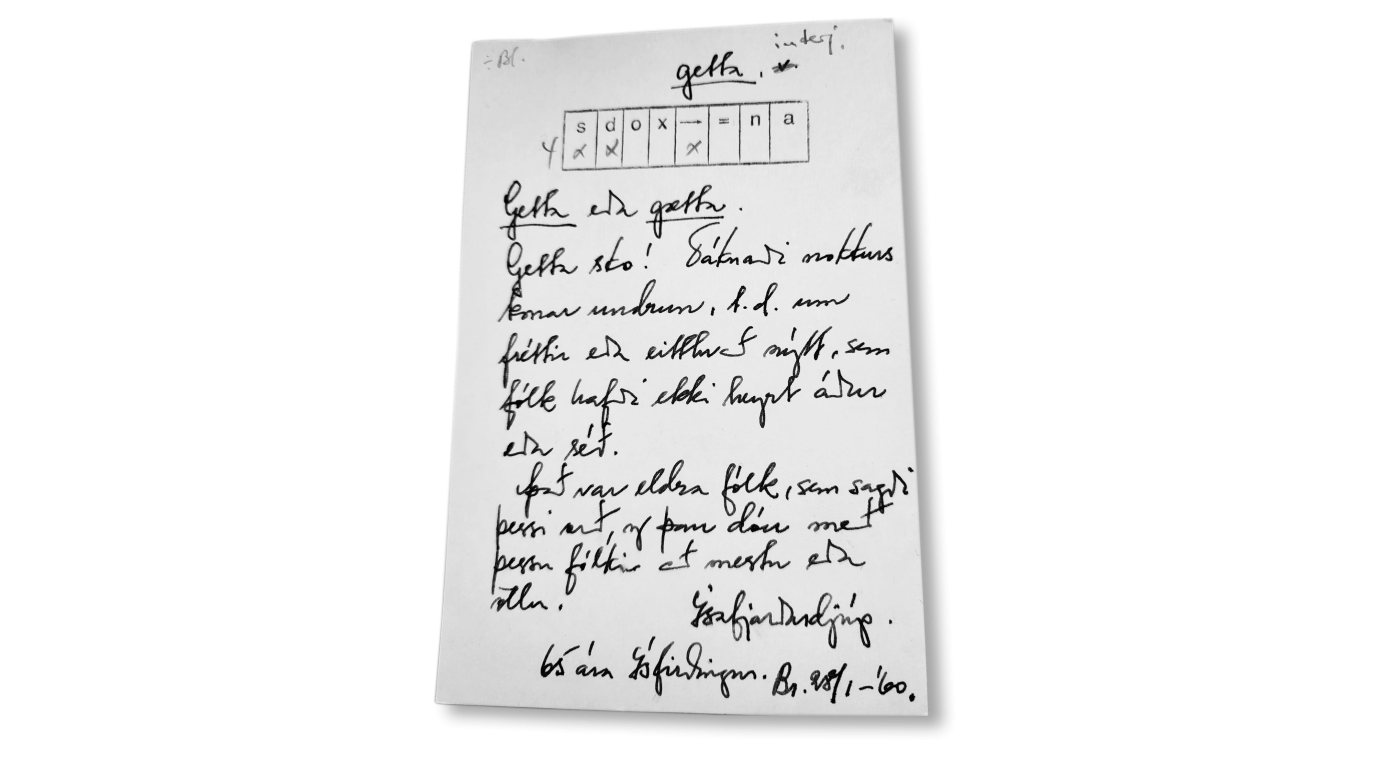 ÷Bl.
interj.
getta, v.
s d o x → = n a
4 x x x
Getta eða gætta.
Getta sko! Táknaði nokkurs
konar undrun, t.d. um
fréttir eða eitthvað nýtt, sem
fólk hafði ekki heyrt áður
eða séð.
Það var eldra fólk, sem sagði
þessi orð, og þau dóu með
þessu fólki að mestu eða
öllu.
Ísafjarðardjúp.
65 ára Ísfirðingur. Br. 28/1-'60.